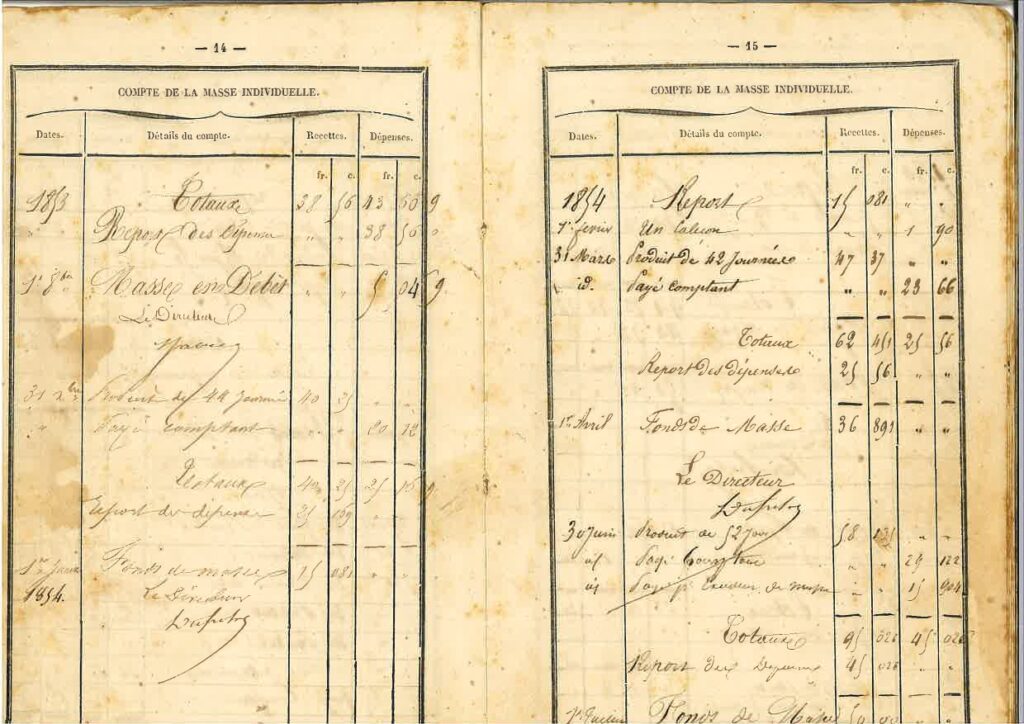 — 14 —
COMPTE DE LA MASSE INDIVIDUELLE.
Dates. Détails du compte. Recettes. Dépenses.
fr. c. fr. c.
1853 Totaux 38 56 43 60 9
" Report des Dépenses " " 38 56 0
1er 8bre Masse en Débet " " 5 04 9
Le Directeur
31 Xbre Produit de 44 journées 40 25 " "
" Payé comptant " " 20 12
Totaux 40 25 25 16 9
Report des dépenses 25 169 " "
1er Janvier Fonds de masse 15 081 " "
1854. Le Directeur
— 15 —
COMPTE DE LA MASSE INDIVIDUELLE.
Dates. Détails du compte. Recettes. Dépenses.
fr. c. fr. c.
1854 Report 15 081 " "
1er fevrier Un Caleçon " " 1 90
31 Mars Produit de 42 Journées 47 37 " "
id. Payé comptant " " 23 66
Totaux 62 451 25 56
Report des dépenses 25 56 " "
1er Avril Fonds de Masse 36 891 " "
Le Directeur
30 Juin Produit de 52 Jour 58 135 " "
id Payé Comptant " " 29 122
id Payé de masse " " 15 904
Totaux 95 026 45 026
Report des Dépenses 45 026 " "
1er Juillet Fonds de Masse